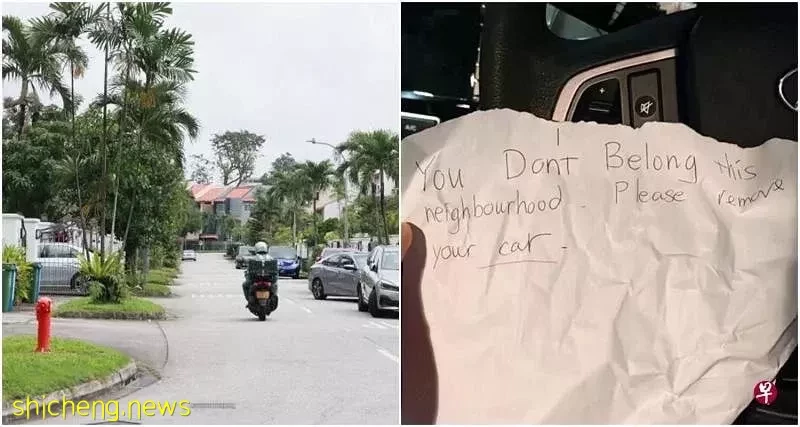 shicheng.news
You Dont Belong this
neighbourhood. Please remove
your car.
早